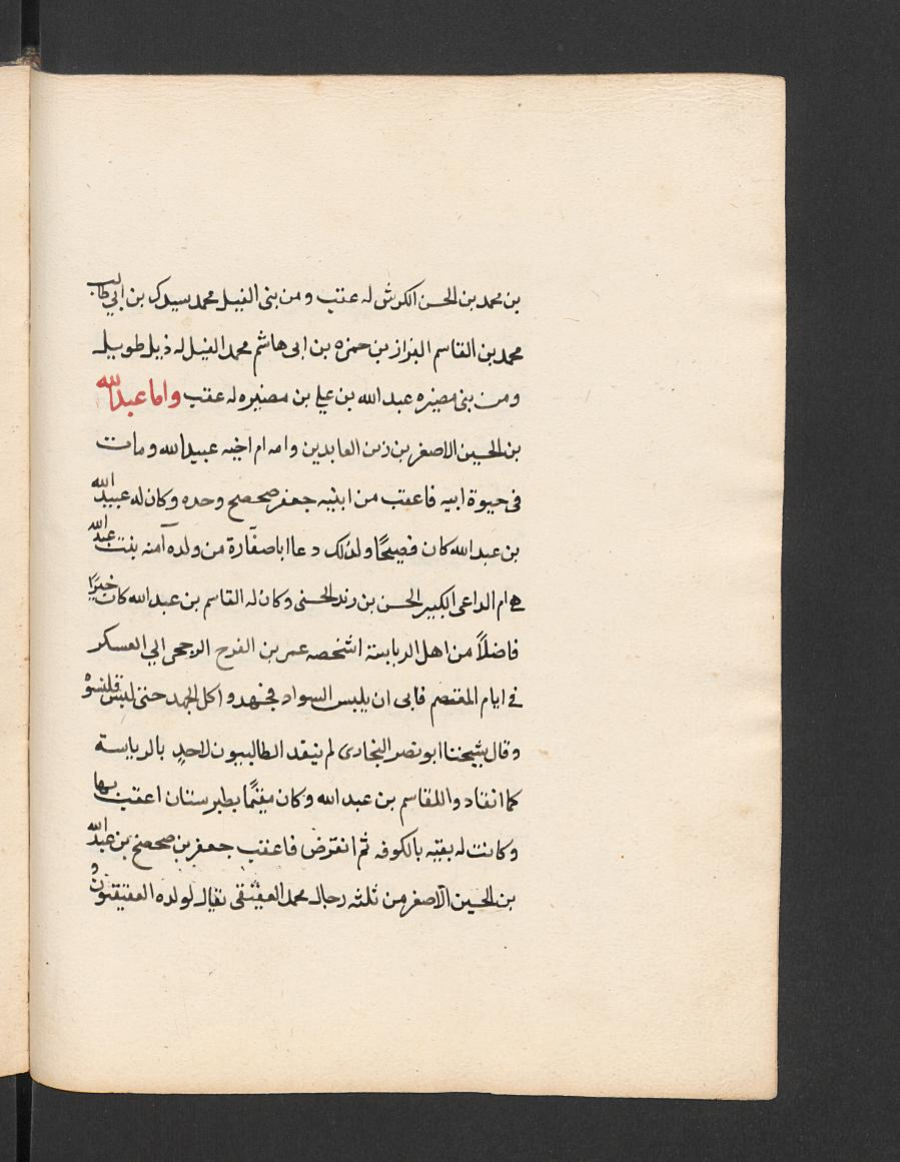 بن محمد بن الحسن الكرش له عقب ومن بنى الفيل محمد سيدك بن ابي طالب
محمد بن القاسم البزاز بن حمزه بن ابى هاشم محمد الفيل له ذيل طويل
ومن بنى مصيره عبد الله بن علي بن مصيره له عقب واما عبد الله
بن الحسين الاصغر بن زين العابدين وامه ام اخيه عبيد الله ومات
فى حيوة ابيه فاعقب من ابنيه جعفر صحصح وحده وكان له عبيد الله
بن عبد الله كان فصيحًا ولذلك دعا اباصفارة من ولده آمنه بنت عبد الله
هي ام الداعى الكبير الحسن بن زيد الحسنى وكان له القاسم بن عبد الله كان خيرًا
فاضلاً من اهل الرياسة اشخصه عمر بن الفرح الرجحى الي العسكر
في ايام المعتصم فابى ان يلبس السواد فجهد واكل الجهد حتى لبس قلنسوة
وقال شيخنا ابو نصر البخارى لم ينقد الطالبيون لاحدٍ بالرياسة
كما انقادوا للقاسم بن عبد الله وكان مقيمًا بطبرستان اعقب بها
وكانت له بقيه بالكوفه ثم انقرض فاعقب جعفر بن صحصح بن عبد الله
بن الحسين الاصغر من ثلثه رجال محمد العقيقى يقال لولده العقيقيون و